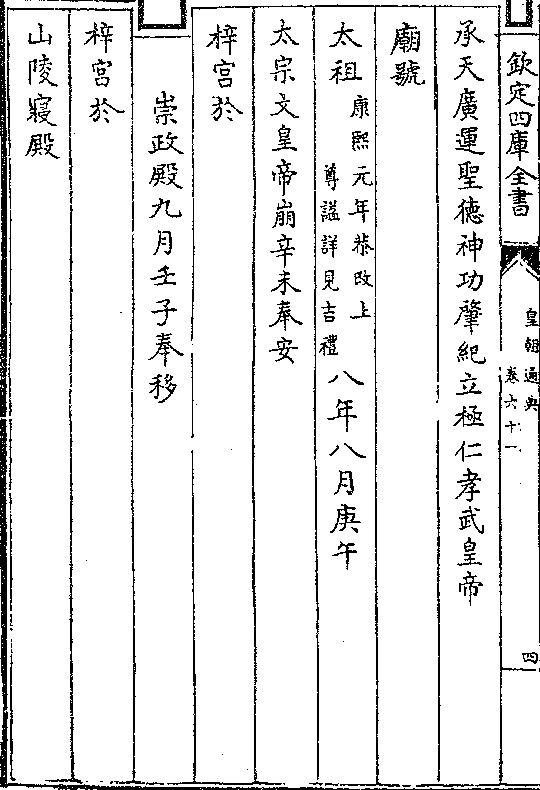 欽定四庫全書
皇朝通典
卷六十一
四
承天廣運聖德神功肇紀立極仁孝武皇帝
廟號
太祖康熙元年恭改上尊諡詳見吉禮八年八月庚午
太宗文皇帝崩辛未奉安
梓宮於
崇政殿九月壬子奉移
梓宮於
山陵寢殿